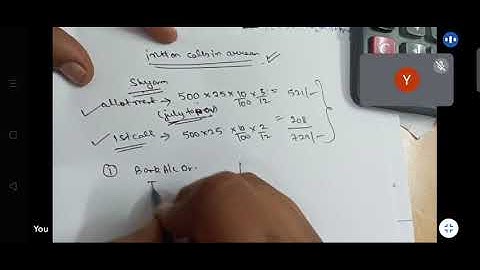 int on calls in arrear
Shyam
allotment → 500 × 25 × 10/100 × 5/12 = 521/-
(july to nov)
1st call → 500 × 25 × 10/100 × 2/12 = 208
729/-
① Bank A/c Dr.
T
Y
You